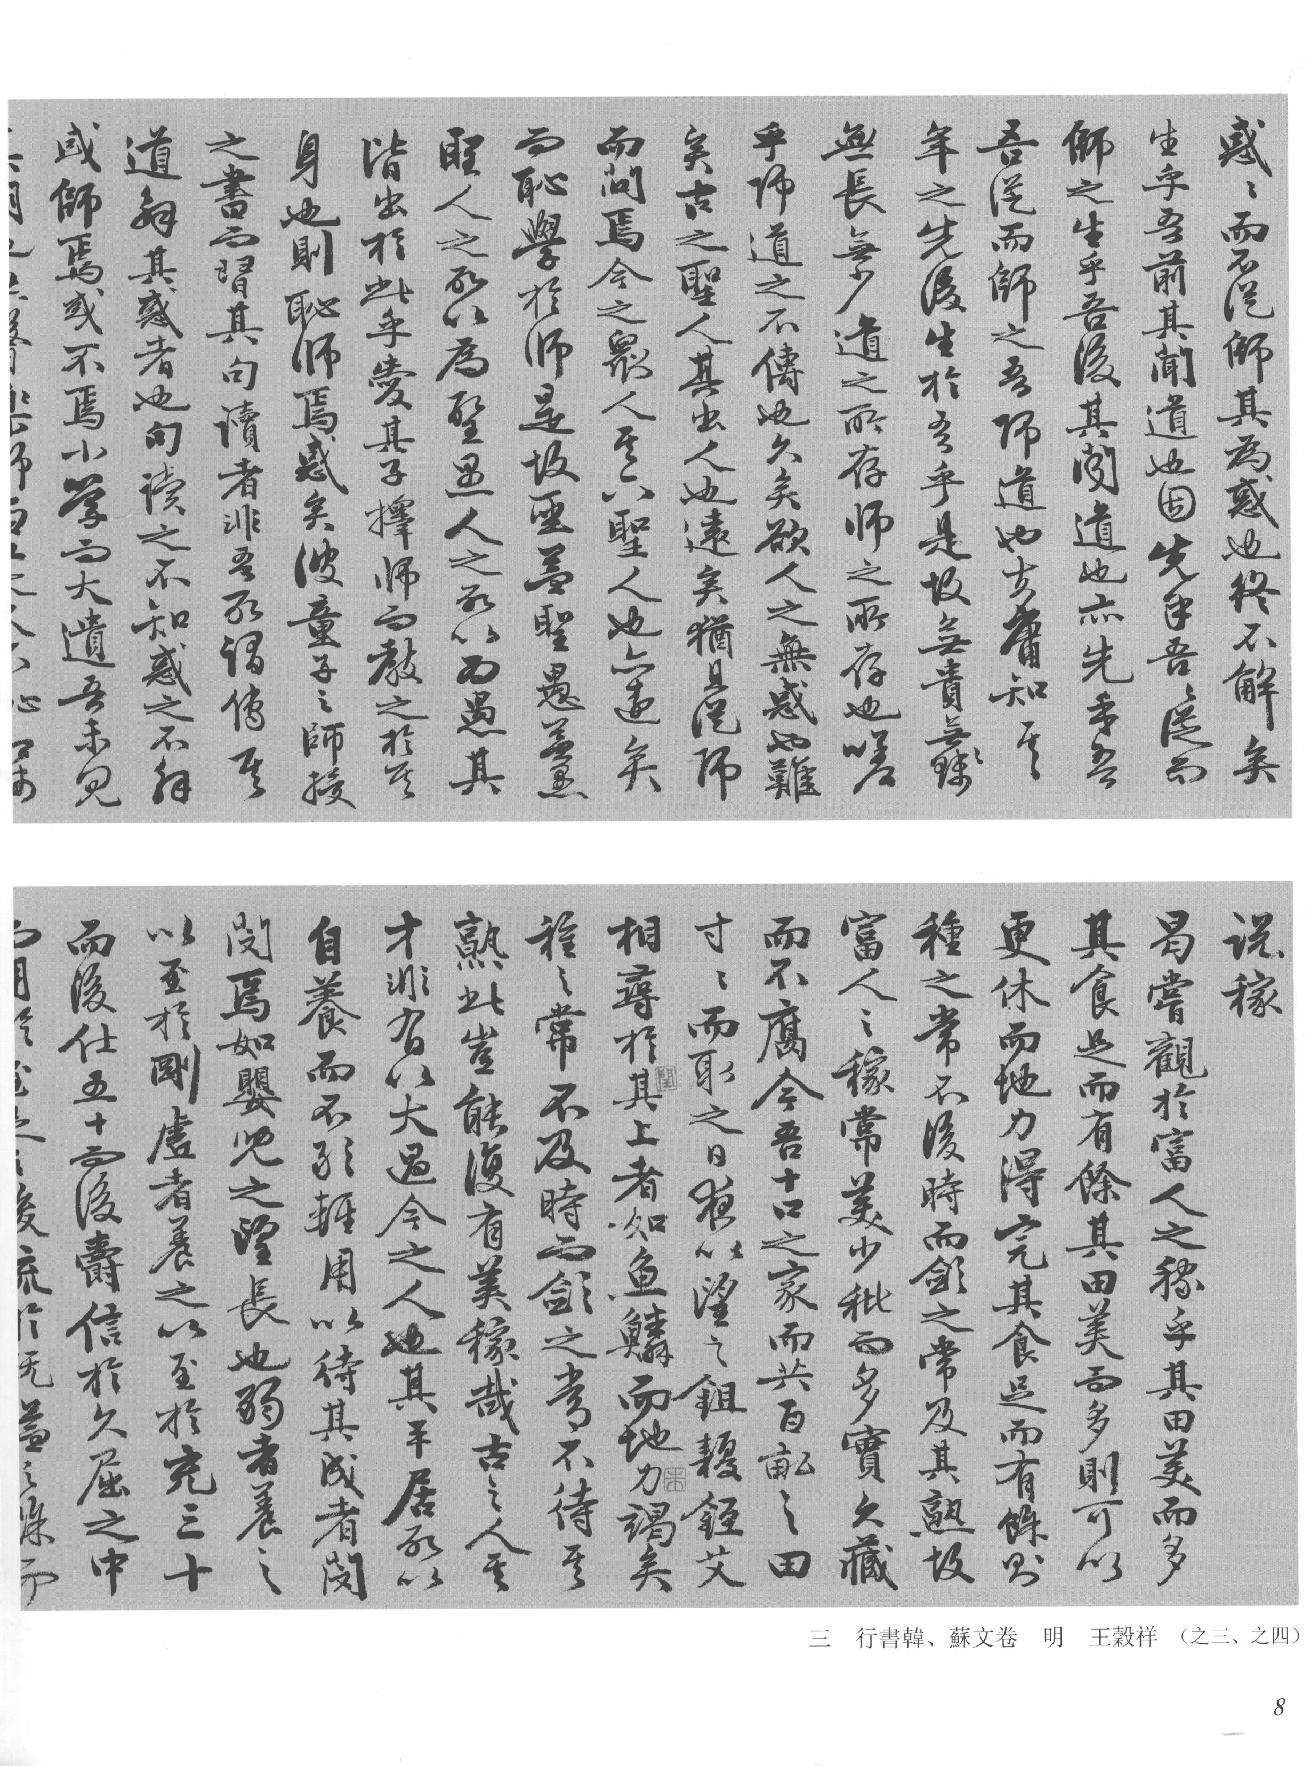 惑〻而不從師其為惑也終不解矣
生乎吾前其聞道也固先乎吾〻從而
師之生乎吾後其聞道也亦先乎吾
吾從而師之吾師道也夫庸知其
年之先後生於吾乎是故無貴無賤
無長無少道之所存師之所存也嗟
乎師道之不傳也久矣欲人之無惑也難
矣古之聖人其出人也遠矣猶且從師
而問焉今之眾人其下聖人也亦遠矣
而恥學於師是故聖益聖愚益愚
聖人之所以為聖愚人之所以為愚其
皆出於此乎愛其子擇師而教之於其
身也則恥師焉惑矣彼童子之師授
之書而習其句讀者非吾所謂傳其
道解其惑者也句讀之不知惑之不解
或師焉或不焉小學而大遺吾未見
其明也巫醫樂師百工之人不恥相師
說稼
曷嘗觀於富人之稼乎其田美而多
其食足而有餘其田美而多則可以
更休而地力得完其食足而有餘則
種之常不後時而斂之常及其熟故
富人之稼常美少秕而多實久藏
而不腐今吾十口之家而共百畝之田
寸〻而取之日夜以望之鋤耰銍艾
相尋於其上者如魚鱗而地力竭矣
種之常不及時而斂之常不待其
熟此豈能復有美稼哉古之人其
才非有以大過今之人也其平居所以
自養而不敢輕用以待其成者閔
閔焉如嬰兒之望長也弱者養之
以至於剛虛者養之以至於充三十
而後仕五十而後爵信於久屈之中
而用於至足之後流於既溢之餘而
三　行書韓、蘇文卷　明　王穀祥　（之三、之四）
8